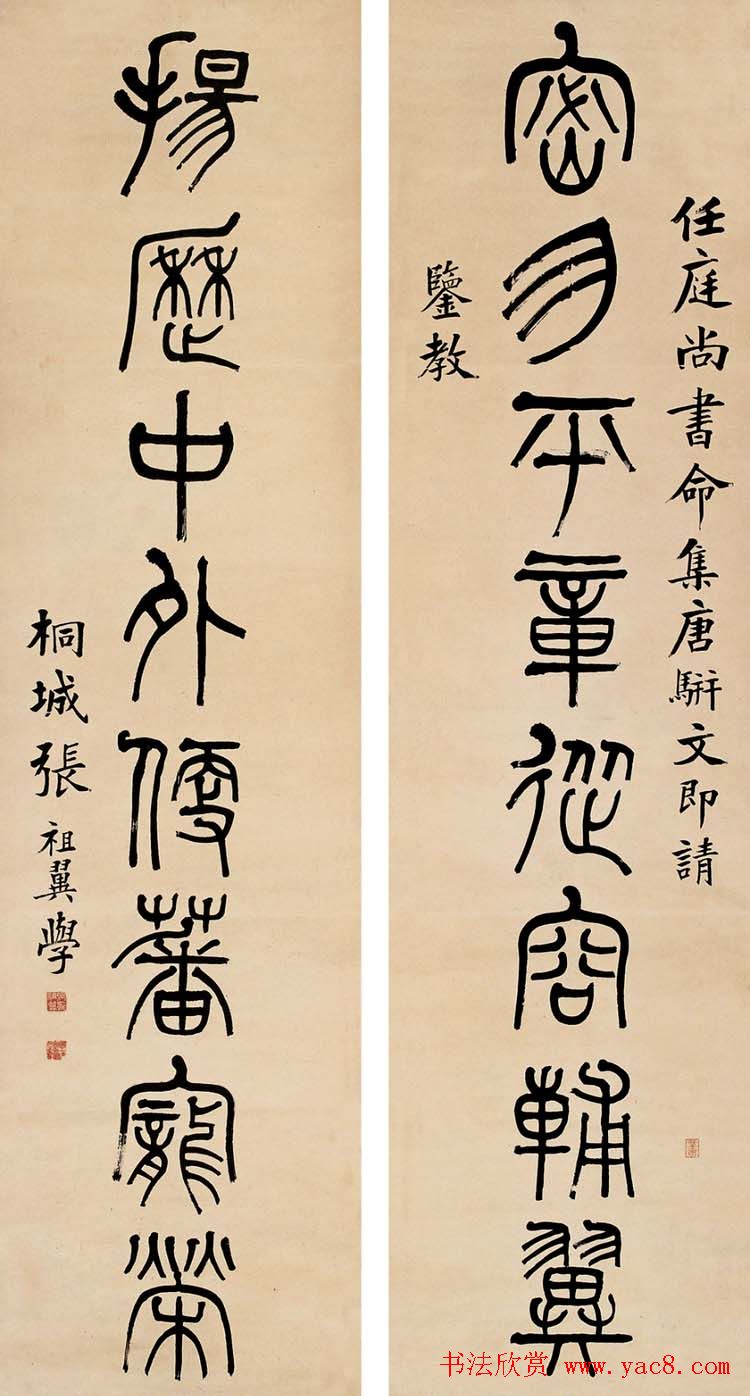 任庭尚書命集唐駢文即請
密勿平章從容輔翼
鑒教
揚歷中外優蕃寵榮
桐城張祖翼學
书法欣赏 www.yac8.com